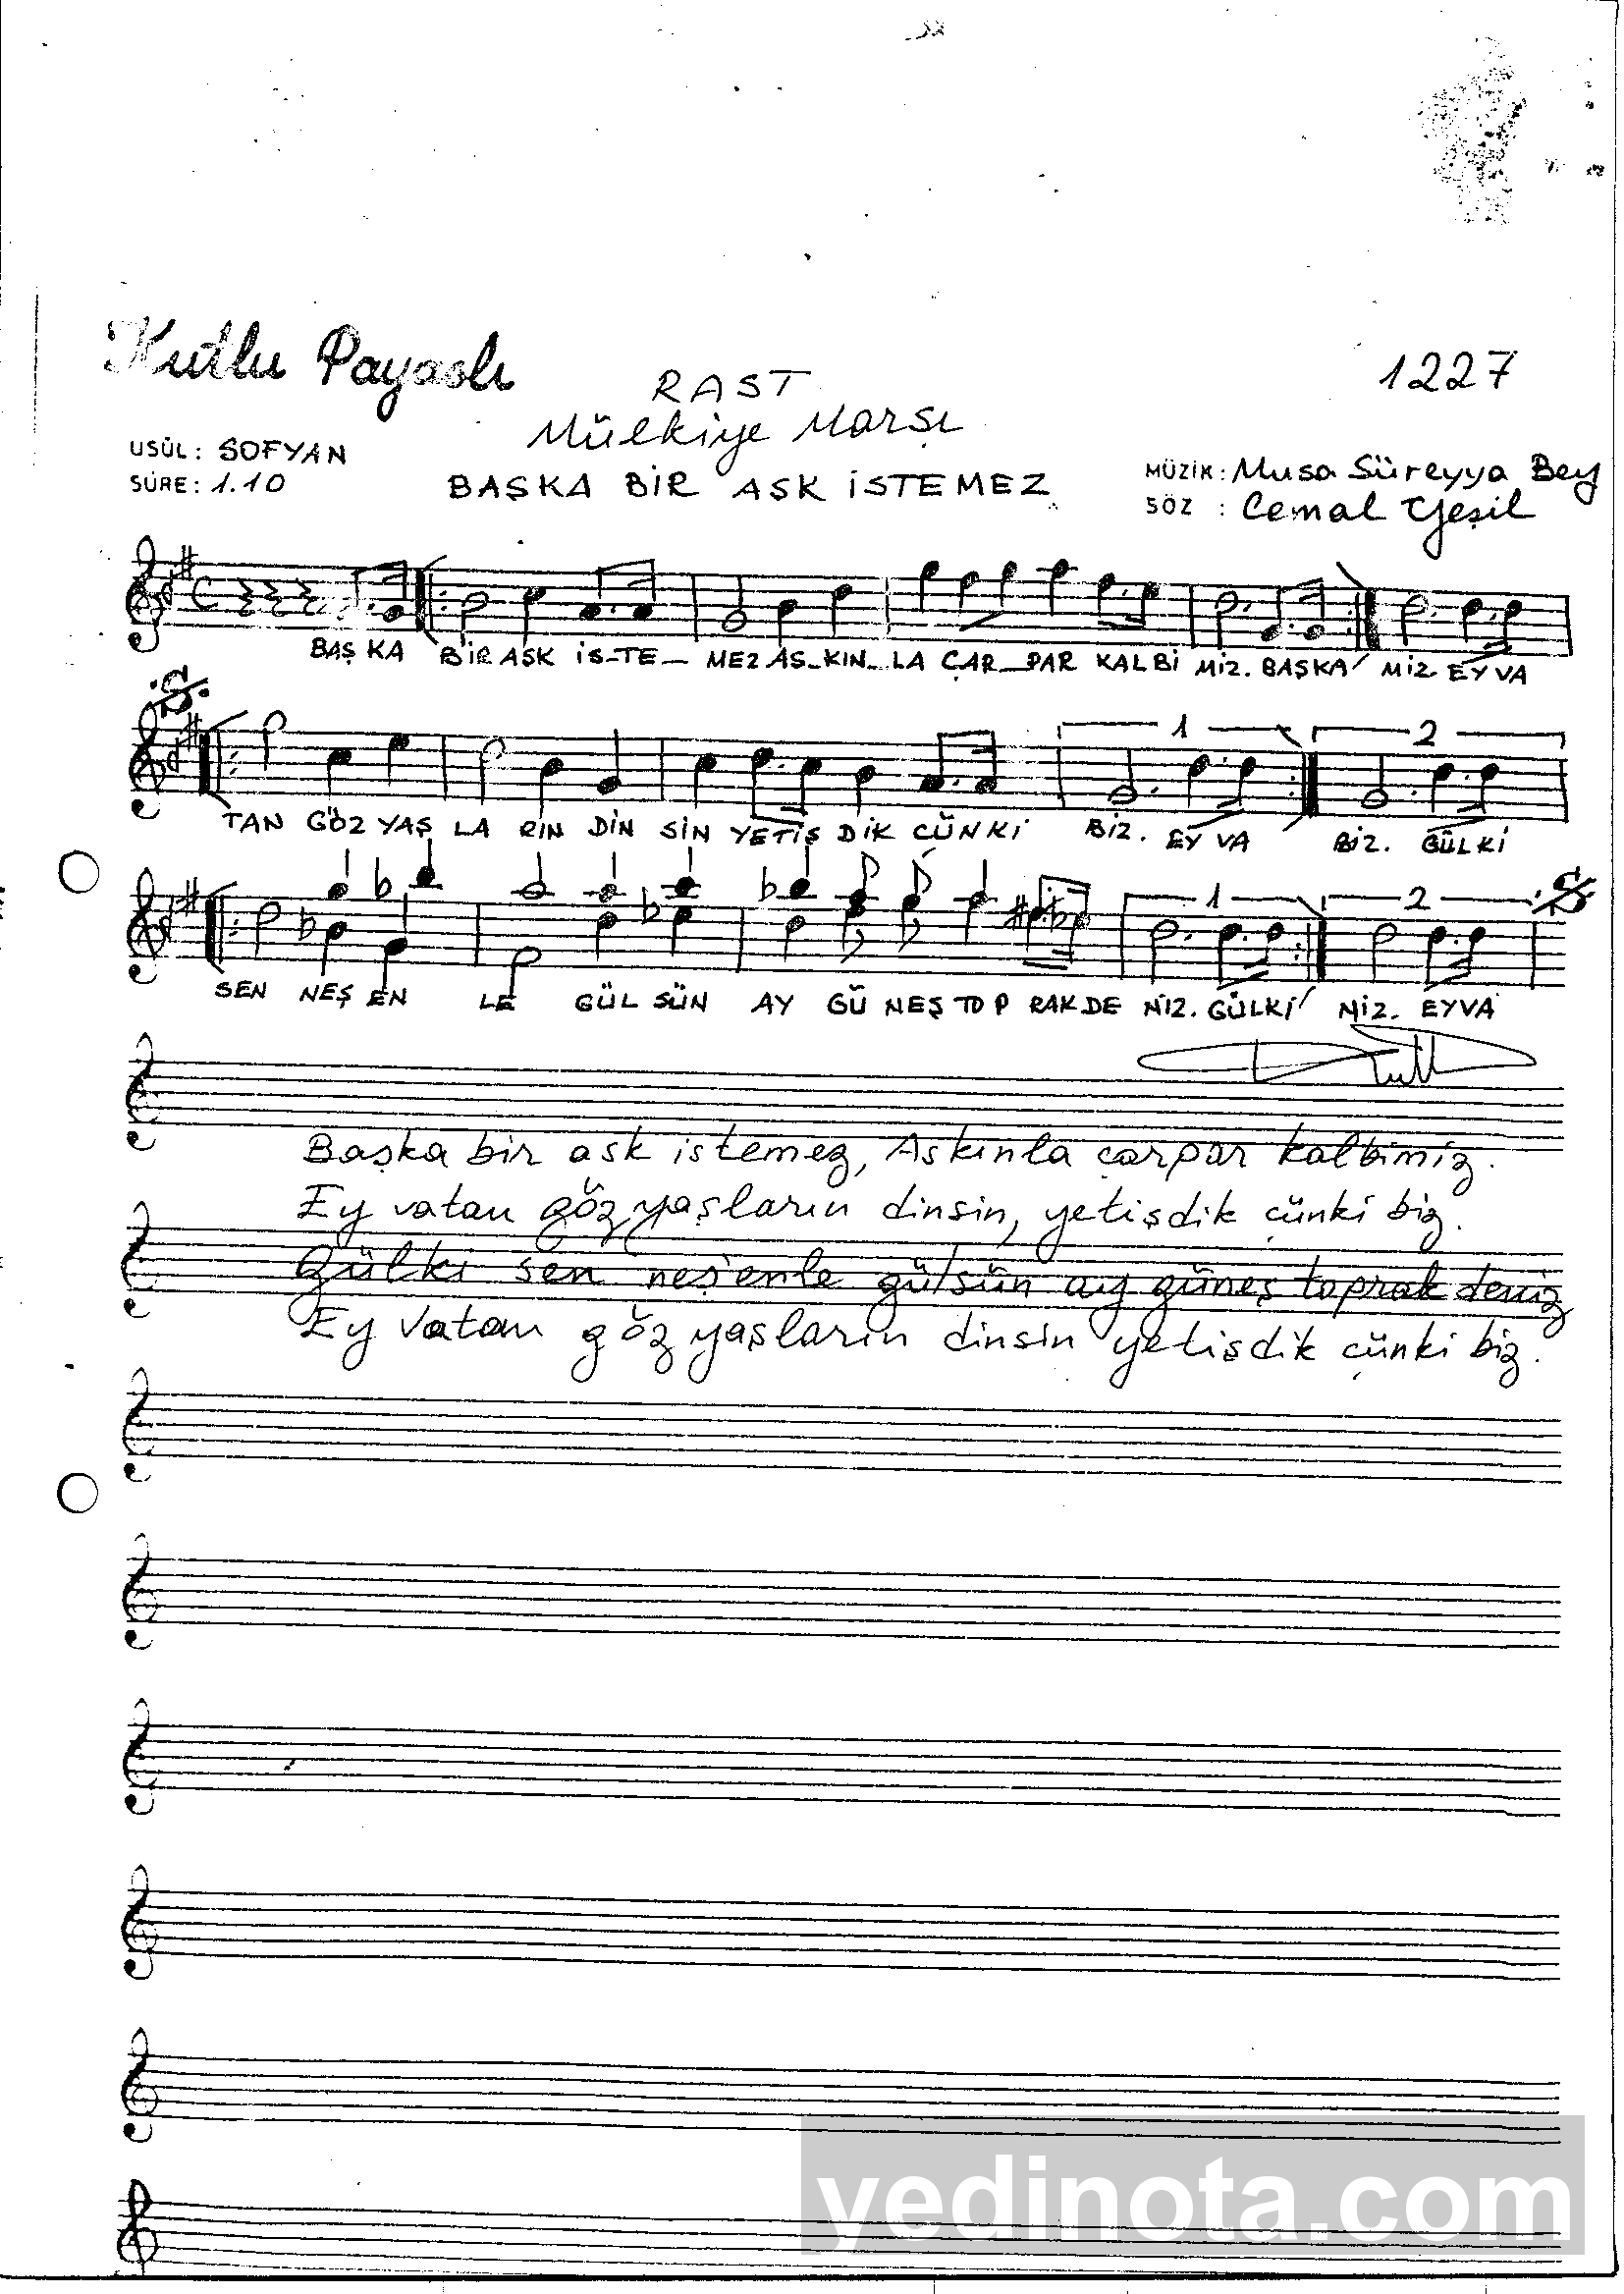 Kutlu Payaslı
RAST
1227
Mülkiye Marşı
USÛL: SOFYAN
SÜRE: 1.10
BAŞKA BİR AŞK İSTEMEZ
MÜZİK: Musa Süreyya Bey
SÖZ : Cemal Yeşil
BAŞ KA BİR AŞK İS-TE- MEZ AŞ-KIN-LA ÇAR-PAR KALBİ MİZ. BAŞKA MİZ EY VA
1 2
TAN GÖZ YAŞ LA RIN DİN SİN YETİŞ DİK ÇÜNKİ BİZ. EY VA BİZ. GÜLKİ
1 2
SEN NEŞ EN LE GÜL SÜN AY GÜ NEŞ TOP RAK DE NİZ. GÜLKİ NİZ. EYVA
Başka bir aşk istemez, Aşkınla çarpar kalbimiz.
Ey vatan göz yaşların dinsin, yetişdik çünki biz.
Gülki sen neş'enle gülsün ay güneş toprak deniz
Ey Vatan göz yaşların dinsin yetişdik çünki biz.
yedinota.com